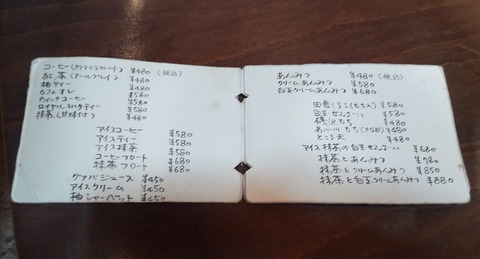 コーヒー(グァテマラフレンチ) ¥480 (税込)
紅茶(アールグレイ) ¥480
柚ティー ¥480
カフェオレ ¥580
ウィンナコーヒー ¥580
ロイヤルミルクティー ¥580
抹茶(甘味付) ¥480
アイスコーヒー ¥580
アイスティー ¥580
アイス抹茶 ¥580
コーヒーフロート ¥680
抹茶フロート ¥680
グァバジュース ¥450
アイスクリーム ¥450
柚シャーベット ¥450
あんみつ ¥480 (税込)
クリームあんみつ ¥580
白玉クリームあんみつ ¥680
田舎しるこ(もち入) ¥580
白玉ぜんざい ¥580
磯辺もち ¥480
あべ川もち(きな粉) ¥480
ところ天 ¥480
アイス抹茶の白玉ぜんざい ¥680
抹茶とあんみつ
抹茶とクリームあんみつ ¥850
抹茶と白玉クリームあんみつ ¥880